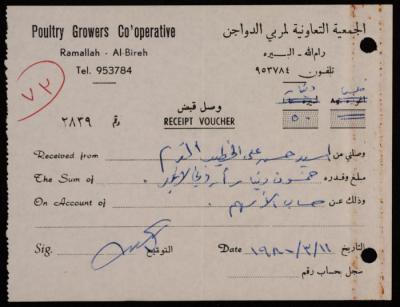 Poultry Growers Co'operative
الجمعية التعاونية لمربي الدواجن
Ramallah - Al-Bireh
رام الله - البيره
Tel. 953784
تلفون ٩٥٣٧٨٤
٧٣
دينار
٥٠
وصل قبض
٢٨٣٩ رقم
RECEIPT VOUCHER
Received from السيد حسن علي الخطيب المحترم وصلني من
The Sum of خمسون دينار أردني لا غير مبلغ وقدره
On Account of حساب الأسهم وذلك عن
Sig. التوقيع
Date ١٩٨٠/٣/١١ التاريخ
سجل بحساب رقم